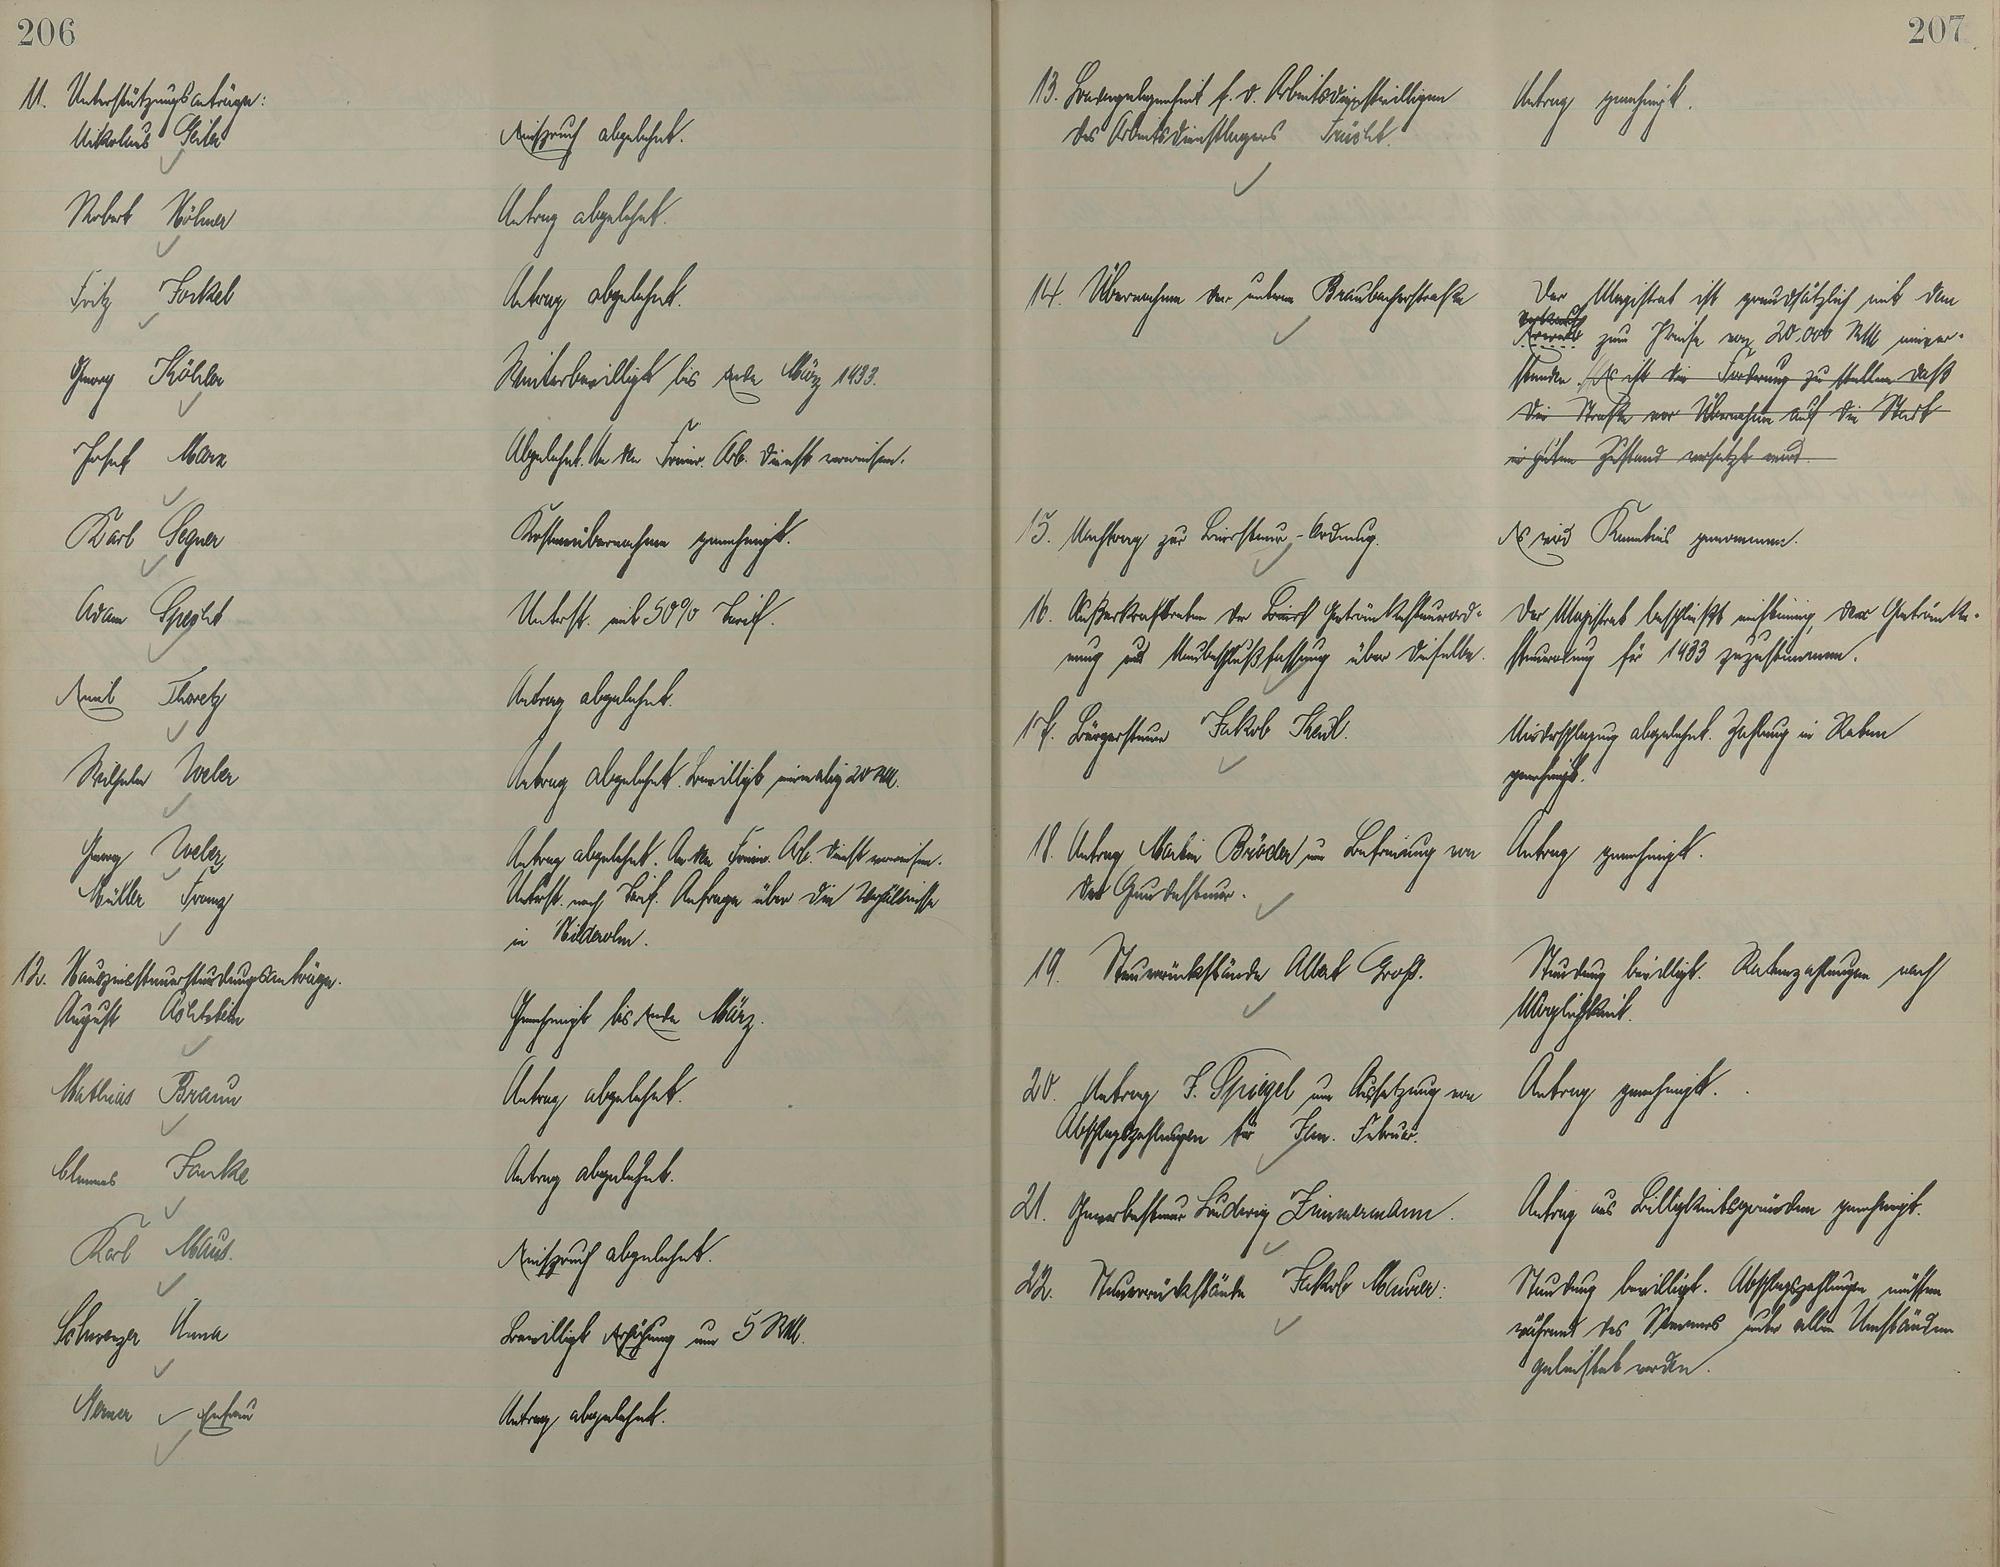 206
11. Unterstützungsanträge:
Nikolaus Geiler
Einspruch abgelehnt.
Norbert Höhner
Antrag abgelehnt.
Fritz Forkel
Antrag abgelehnt.
Georg Köhler
Weiterbewilligt bis Ende März 1933.
Josef Marx
Abgelehnt. An den Freiw. Arb. Dienst verweisen.
Karl Segner
Kostenübernahme genehmigt.
Adam Specht
Unterst. mit 50% Tarif.
Emil Thoretz
Antrag abgelehnt.
Wilhelm Weler
Antrag abgelehnt. Bewilligt einmalig 20 RM.
Georg Weler
Antrag abgelehnt. An den Freiw. Arb. Dienst verweisen.
Müller Franz
Unterst. nach Tarif. Anfrage über die Verhältnisse
in Niederolm.
12. Hauszinssteuerstundungsanträge.
August
Genehmigt bis Ende März.
Mathias Braun
Antrag abgelehnt.
Clemens Janke
Antrag abgelehnt.
Karl Maus.
Einspruch abgelehnt.
Schwenzer Anna
Bewilligt Erhöhung um 5 RM.
Werner Ehefrau
Antrag abgelehnt.
207
13. Badegelegenheit f. d. Arbeitsdienstwilligen
des Arbeitsdienstlagers Frücht.
Antrag genehmigt.
14. Übernahme der unteren Braubacherstraße
Der Magistrat ist grundsätzlich mit dem
Verkauf
zum Preise von 20.000 RM einver-
standen. Es ist die Forderung zu stellen daß
die Straße vor Übernahme auf die Stadt
in guten Zustand versetzt wird.
15. Nachtrag zur Biersteuer-Ordnung.
Es wird Kenntnis genommen.
16. Außerkrafttreten der Getränkesteuerord-
nung und Neubeschlußfassung über dieselbe.
Der Magistrat beschließt einstimmig, der Getränke-
steuerordnung für 1933 zuzustimmen.
17. Bürgersteuer Jakob Theil.
Niederschlagung abgelehnt. Zahlung in Raten
genehmigt.
18. Antrag Martin Bröder um Befreiung von
der Grundsteuer.
Antrag genehmigt.
19. Steuerrückstände Albert Groß.
Stundung bewilligt. Ratenzahlungen nach
Möglichkeit.
20. Antrag J. Spiegel um Aussetzung von
Abschlagszahlungen für Jan. Februar.
Antrag genehmigt.
21. Gewerbesteuer Ludwig Zimmermann.
Antrag aus Billigkeitsgründen genehmigt.
22. Steuerrückstände Jakob Maurer:
Stundung bewilligt. Abschlagszahlungen müssen
während des Sommers unter allen Umständen
geleistet werden.